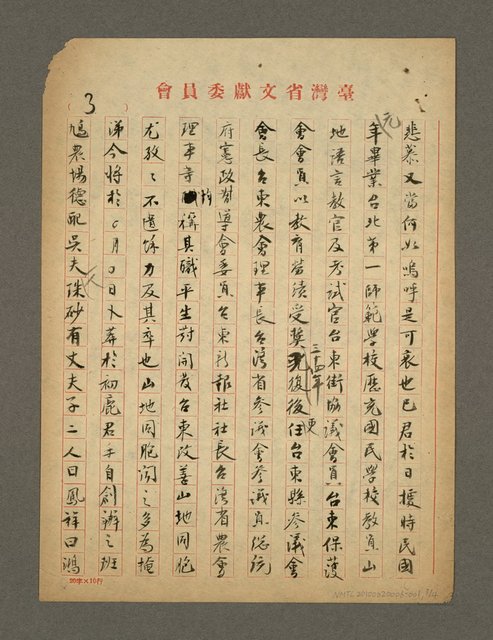 臺灣省文獻委員會
3
悲慕又當何如嗚呼是可哀也已君於日據時民國
元
年畢業台北第一師範學校歷充國民學校教員山
地語言教官及考試官台東街協議會員台東保護
會會員以教育勞績受獎光復後任台東縣參議會
三十四年
會長台東農會理事長台灣省參議會參議員總統
府憲政督導會委員台東新報社社長台灣省農會
理事等 稱其職平生對開發台東改善山地同胞
尤孜々不遺餘力及其卒也山地同胞聞之多為掩
涕今將於〇月〇日卜葬於初鹿君手自創辦之班
鳩農場德配吳夫珠砂有丈夫子二人曰鳳祥曰鴻
人
20字×10行
NMTL20100820006-001, 3/4